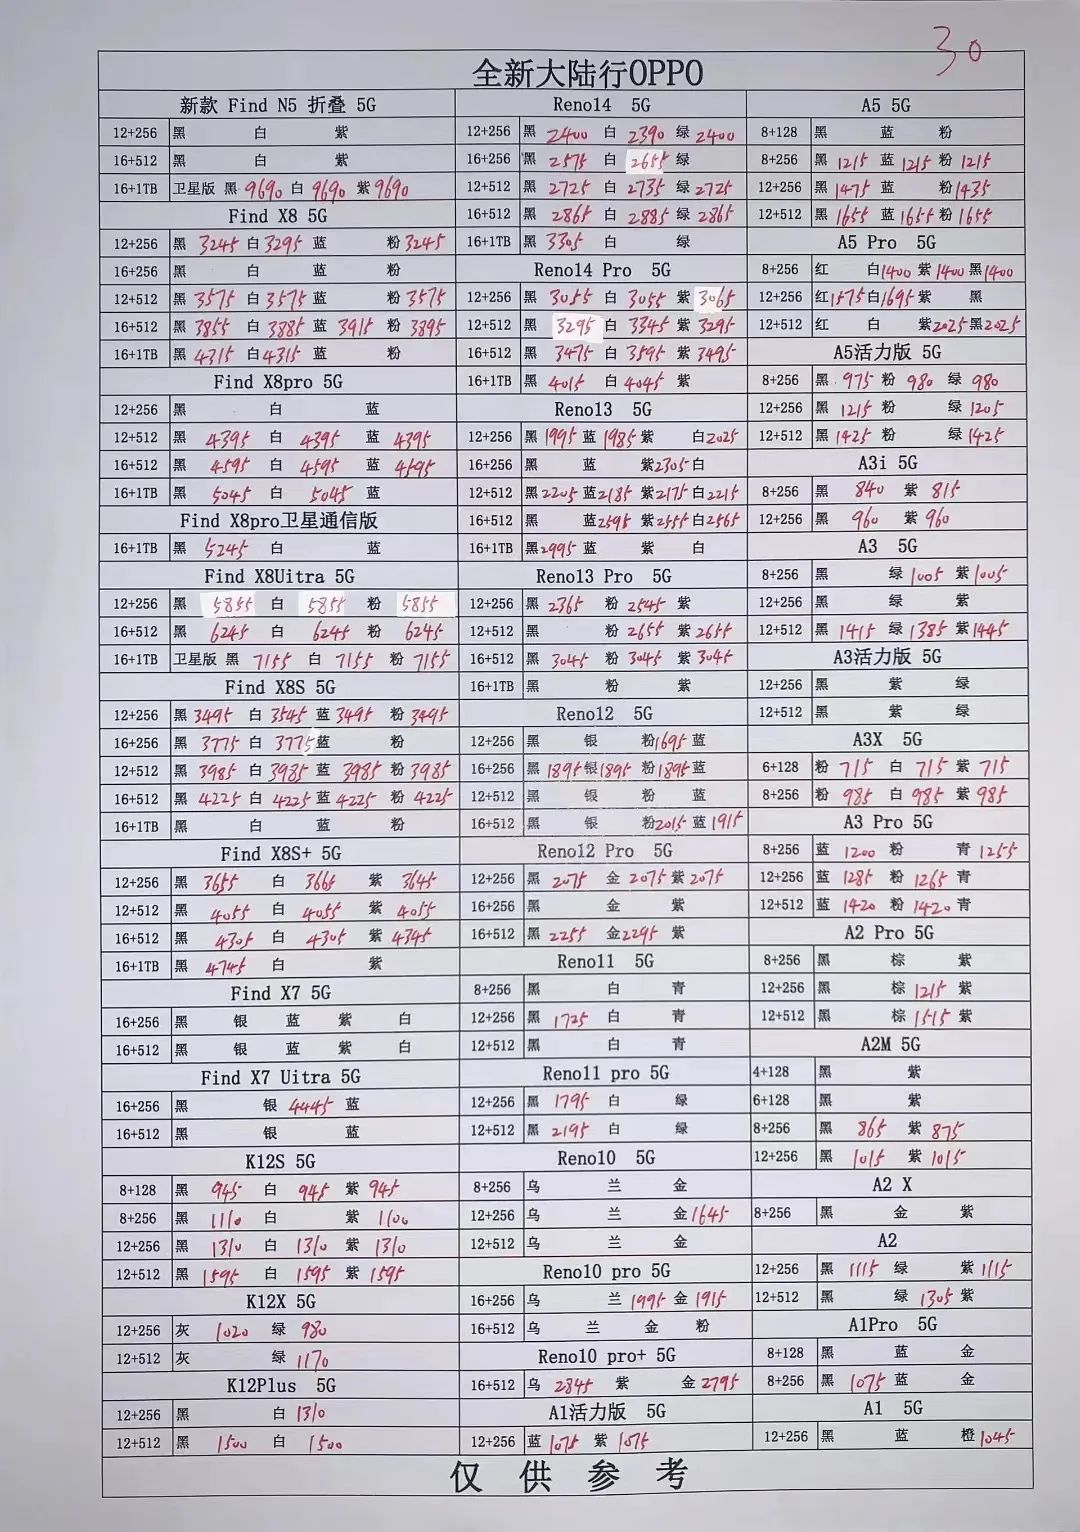 30
全新大陆行OPPO
新款 Find N5 折叠 5G
12+256 黑 白 紫
16+512 黑 白 紫
16+1TB 卫星版 黑 9690 白 9690 紫 9690
Find X8 5G
12+256 黑 3245 白 3295 蓝 粉 3245
16+256 黑 白 蓝 粉
12+512 黑 3575 白 3575 蓝 粉 3575
16+512 黑 3855 白 3885 蓝 3915 粉 3895
16+1TB 黑 4315 白 4315 蓝 粉
Find X8pro 5G
12+256 黑 白 蓝
12+512 黑 4395 白 4395 蓝 4395
16+512 黑 4595 白 4595 蓝 4595
16+1TB 黑 5045 白 5045 蓝
Find X8pro卫星通信版
16+1TB 黑 5245 白 蓝
Find X8Uitra 5G
12+256 黑 5855 白 5855 粉 5855
16+512 黑 6245 白 6245 粉 6245
16+1TB 卫星版 黑 7155 白 7155 粉 7155
Find X8S 5G
12+256 黑 3495 白 3545 蓝 3495 粉 3495
16+256 黑 3775 白 3775 蓝 粉
12+512 黑 3985 白 3985 蓝 3985 粉 3985
16+512 黑 4225 白 4225 蓝 4225 粉 4225
16+1TB 黑 白 蓝 粉
Find X8S+ 5G
12+256 黑 3655 白 3665 紫 3645
12+512 黑 4055 白 4055 紫 4055
16+512 黑 4305 白 4305 紫 4345
16+1TB 黑 4745 白 紫
Find X7 5G
16+256 黑 银 蓝 紫 白
16+512 黑 银 蓝 紫 白
Find X7 Uitra 5G
16+256 黑 银 4445 蓝
16+512 黑 银 蓝
K12S 5G
8+128 黑 945 白 945 紫 945
8+256 黑 1110 白 紫 1100
12+256 黑 1310 白 1310 紫 1310
12+512 黑 1595 白 1595 紫 1595
K12X 5G
12+256 灰 1020 绿 980
12+512 灰 绿 1170
K12Plus 5G
12+256 黑 白 1310
12+512 黑 1500 白 1500
Reno14 5G
12+256 黑 2400 白 2390 绿 2400
16+256 黑 2575 白 2655 绿
12+512 黑 2725 白 2735 绿 2725
16+512 黑 2865 白 2885 绿 2865
16+1TB 黑 3305 白 绿
Reno14 Pro 5G
12+256 黑 3055 白 3055 紫 3065
12+512 黑 3295 白 3345 紫 3295
16+512 黑 3475 白 3595 紫 3495
16+1TB 黑 4015 白 4045 紫
Reno13 5G
12+256 黑 1995 蓝 1985 紫 白 2025
16+256 黑 蓝 紫 2305 白
12+512 黑 2205 蓝 2185 紫 2175 白 2215
16+512 黑 蓝 2595 紫 2555 白 2565
16+1TB 黑 2995 蓝 紫 白
Reno13 Pro 5G
12+256 黑 2365 粉 2545 紫
12+512 黑 粉 2655 紫 2655
16+512 黑 3045 粉 3045 紫 3045
16+1TB 黑 粉 紫
Reno12 5G
12+256 黑 银 粉 1695 蓝
16+256 黑 1895 银 1895 粉 1895 蓝
12+512 黑 银 粉 蓝
16+512 黑 银 粉 2015 蓝 1915
Reno12 Pro 5G
12+256 黑 2075 金 2075 紫 2075
16+256 黑 金 紫
16+512 黑 2255 金 2295 紫
Reno11 5G
8+256 黑 白 青
12+256 黑 1725 白 青
12+512 黑 白 青
Reno11 pro 5G
12+256 黑 1795 白 绿
12+512 黑 2195 白 绿
Reno10 5G
8+256 乌 兰 金
12+256 乌 兰 金 1645
12+512 乌 兰 金
Reno10 pro 5G
16+256 乌 兰 1995 金 1915
16+512 乌 兰 金 粉
Reno10 pro+ 5G
16+512 乌 2845 紫 金 2795
A1活力版 5G
12+256 蓝 1075 紫 1075
A5 5G
8+128 黑 蓝 粉
8+256 黑 1215 蓝 1215 粉 1215
12+256 黑 1475 蓝 粉 1435
12+512 黑 1655 蓝 1655 粉 1655
A5 Pro 5G
8+256 红 白 1400 紫 1400 黑 1400
12+256 红 1575 白 1695 紫 黑
12+512 红 白 紫 2025 黑 2025
A5活力版 5G
8+256 黑 975 粉 980 绿 980
12+256 黑 1215 粉 绿 1205
12+512 黑 1425 粉 绿 1425
A3i 5G
8+256 黑 840 紫 815
12+256 黑 960 紫 960
A3 5G
8+256 黑 绿 1005 紫 1005
12+256 黑 绿 紫
12+512 黑 1415 绿 1385 紫 1445
A3活力版 5G
12+256 黑 紫 绿
12+512 黑 紫 绿
A3X 5G
6+128 粉 715 白 715 紫 715
8+256 粉 985 白 985 紫 985
A3 Pro 5G
8+256 蓝 1200 粉 青 1255
12+256 蓝 1285 粉 1265 青
12+512 蓝 1420 粉 1420 青
A2 Pro 5G
8+256 黑 棕 紫
12+256 黑 棕 1215 紫
12+512 黑 棕 1515 紫
A2M 5G
4+128 黑 紫
6+128 黑 紫
8+256 黑 865 紫 875
12+256 黑 1015 紫 1015
A2 X
8+256 黑 金 紫
A2
12+256 黑 1115 绿 紫 1115
12+512 黑 绿 1305 紫
A1Pro 5G
8+128 黑 蓝 金
8+256 黑 1075 蓝 金
A1 5G
12+256 黑 蓝 橙 1045
仅供参考